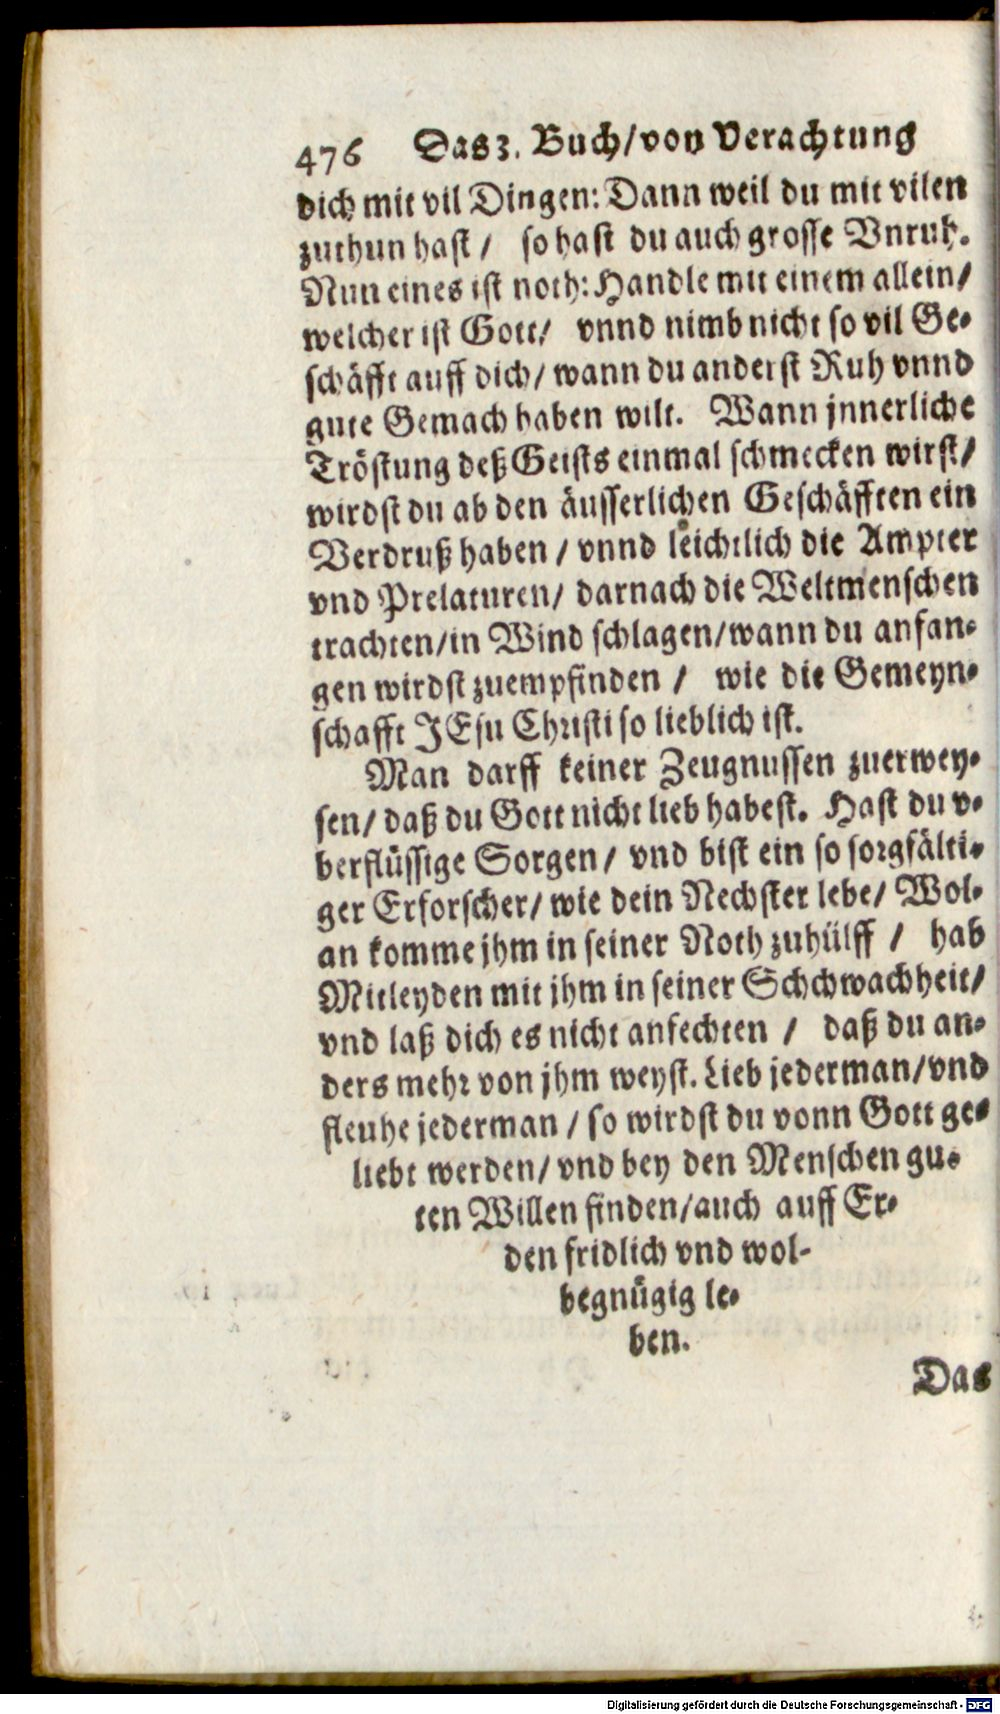 476 Das 3. Buch/von Verachtung
dich mit vil Dingen: Dann weil du mit vilen
zuthun hast / so hast du auch grosse Vnruh.
Nun eines ist noth: Handle mit einem allein/
welcher ist Gott/ vnnd nimb nicht so vil Ge-
schäfft auff dich/ wann du anderst Ruh vnnd
gute Gemach haben wilt. Wann jnnerliche
Tröstung deß Geists einmal schmecken wirst/
wirdst du ab den äusserlichen Geschäfften ein
Verdruß haben / vnnd leichtlich die Ampter
vnd Prelaturen/ darnach die Weltmenschen
trachten/in Wind schlagen/wann du anfan-
gen wirdst zuempfinden / wie die Gemeyn-
schafft JEsu Christi so lieblich ist.
Man darff keiner Zeugnussen zuerwey-
sen/ daß du Gott nicht lieb habest. Hast du v-
berflüssige Sorgen/ vnd bist ein so sorgfälti-
ger Erforscher/ wie dein Nechster lebe/ Wol-
an komme jhm in seiner Noth zuhülff / hab
Mitleyden mit jhm in seiner Schchwachheit/
vnd laß dich es nicht anfechten / daß du an-
ders mehr von jhm weyst. Lieb jederman/vnd
fleuhe jederman / so wirdst du vonn Gott ge-
liebt werden/ vnd bey den Menschen gu-
ten Willen finden/auch auff Er-
den fridlich vnd wol-
begnügig le-
ben.
Das
Digitalisierung gefördert durch die Deutsche Forschungsgemeinschaft - DFG